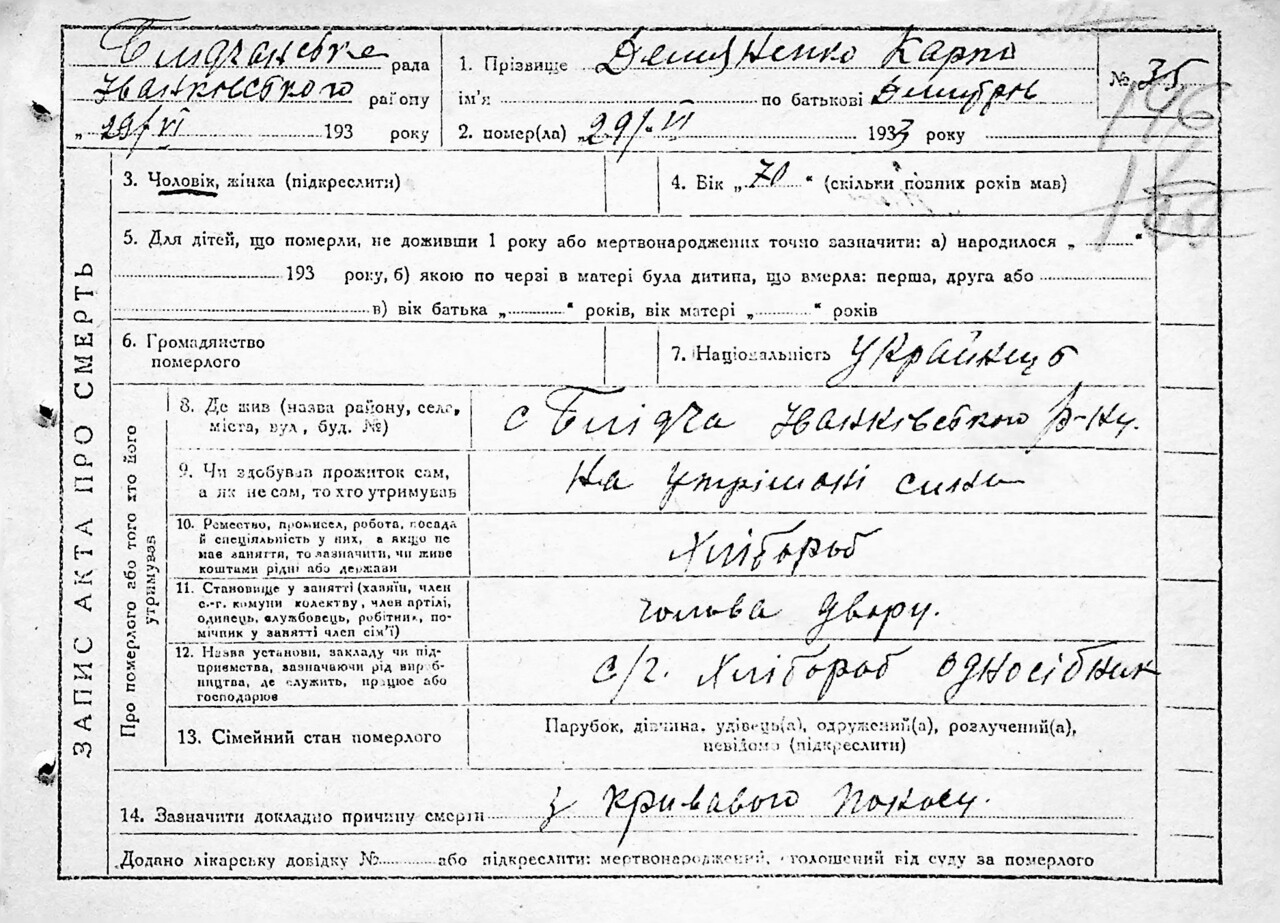 Блідчанське рада
Іванківського району
„ 29/VI 193 року
1. Прізвище Демиденко Карпо
ім'я по батькові Дмитров
2. помер(ла) 29/VI 1933 року
№ 35
146
3. Чоловік, жінка (підкреслити)
4. Вік „ 70 “ (скільки повних років мав)
5. Для дітей, що померли, не доживши 1 року або мертвонароджених точно зазначити: а) народилося „ “
193 року, б) якою по черзі в матері була дитина, що вмерла: перша, друга або
в) вік батька „ “ років, вік матері „ “ років
6. Громадянство
померлого
7. Національність Українць
ЗАПИС АКТА ПРО СМЕРТЬ
Про померлого або того хто його
утримував
8. Де жив (назва району, села,
міста, вул, буд. №)
с Блідча Іванківського р-ну.
9. Чи здобував прожиток сам,
а як не сам, то хто утримував
На утрімані сина
10. Ремество, промисел, робота, посада
й спеціяльність у них, а якщо не
має заняття, то зазначити, чи живе
коштами рідні або держави
Хлібороб
11. Становище у занятті (хазяїн, член
с.-г. комуни колектву, член артілі,
одинець, службовець, робітник, по-
мічник у занятті член сім'ї)
голова двору.
12. Назва установи, закладу чи під-
приємства, зазначаючи рід вироб-
ництва, де служить, працює або
господарює
с/г. Хлібороб односібник
13. Сімейний стан померлого
Парубок, дівчина, удівець(а), одружений(а), розлучений(а),
невідомо (підкреслити)
14. Зазначити докладно причину смерти з кривавого поносу.
Додано лікарську довідку № або підкреслити: мертвонароджений, оголошений від суду за померлого